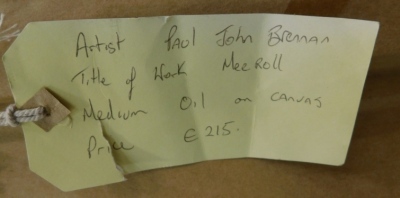 Artist Paul John Brennan
Title of Work Mezroll
Medium Oil on canvas
Price € 215.